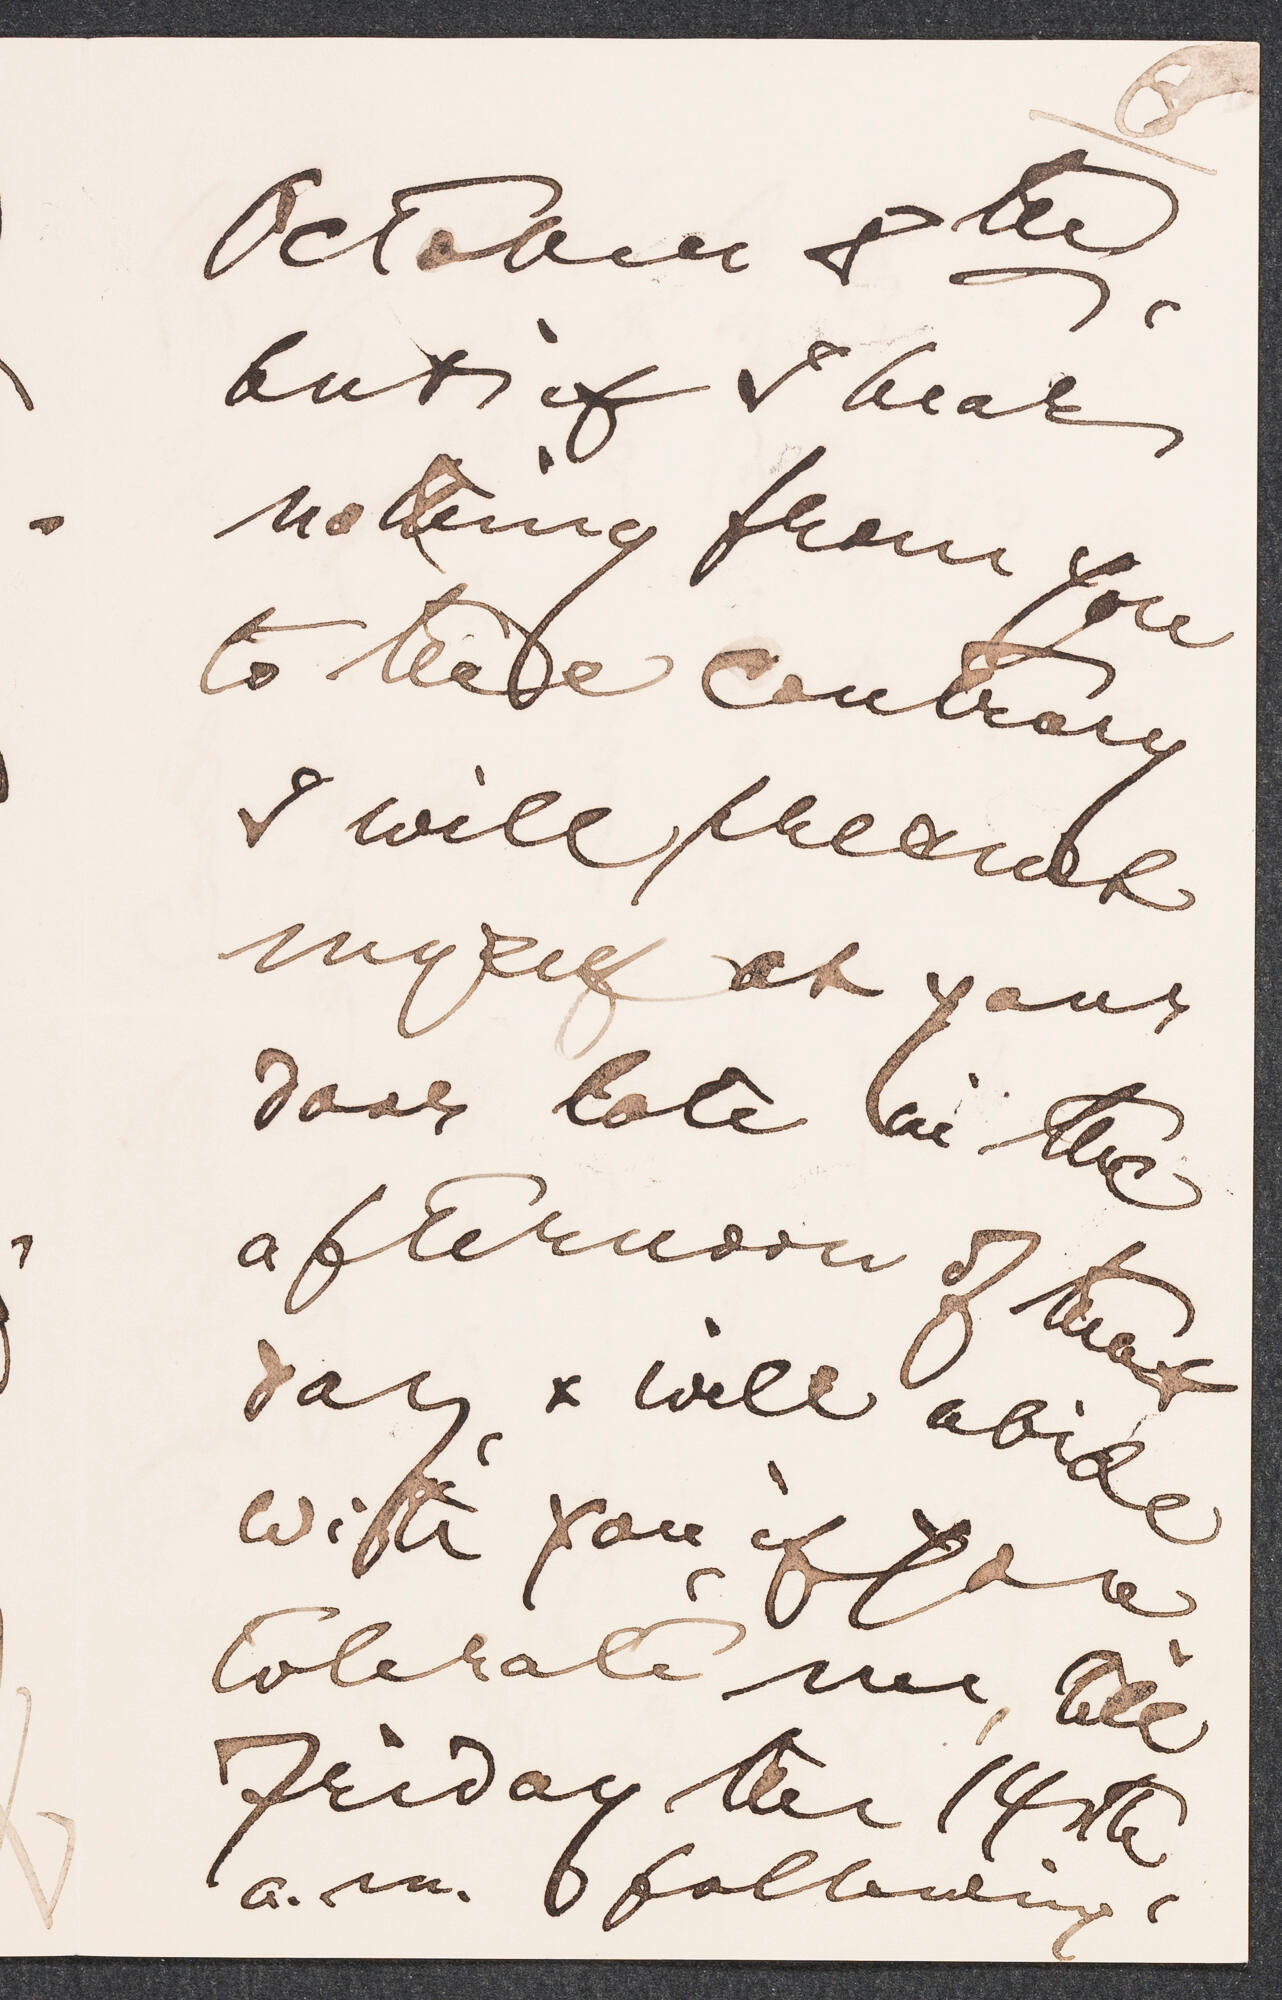 October 8th,
but if I hear
nothing from you
to the contrary
I will present
myself at your
door late in the
afternoon of that
day, & will abide
with you, if you
tolerate me, till
Friday the 14th
a.m. following,